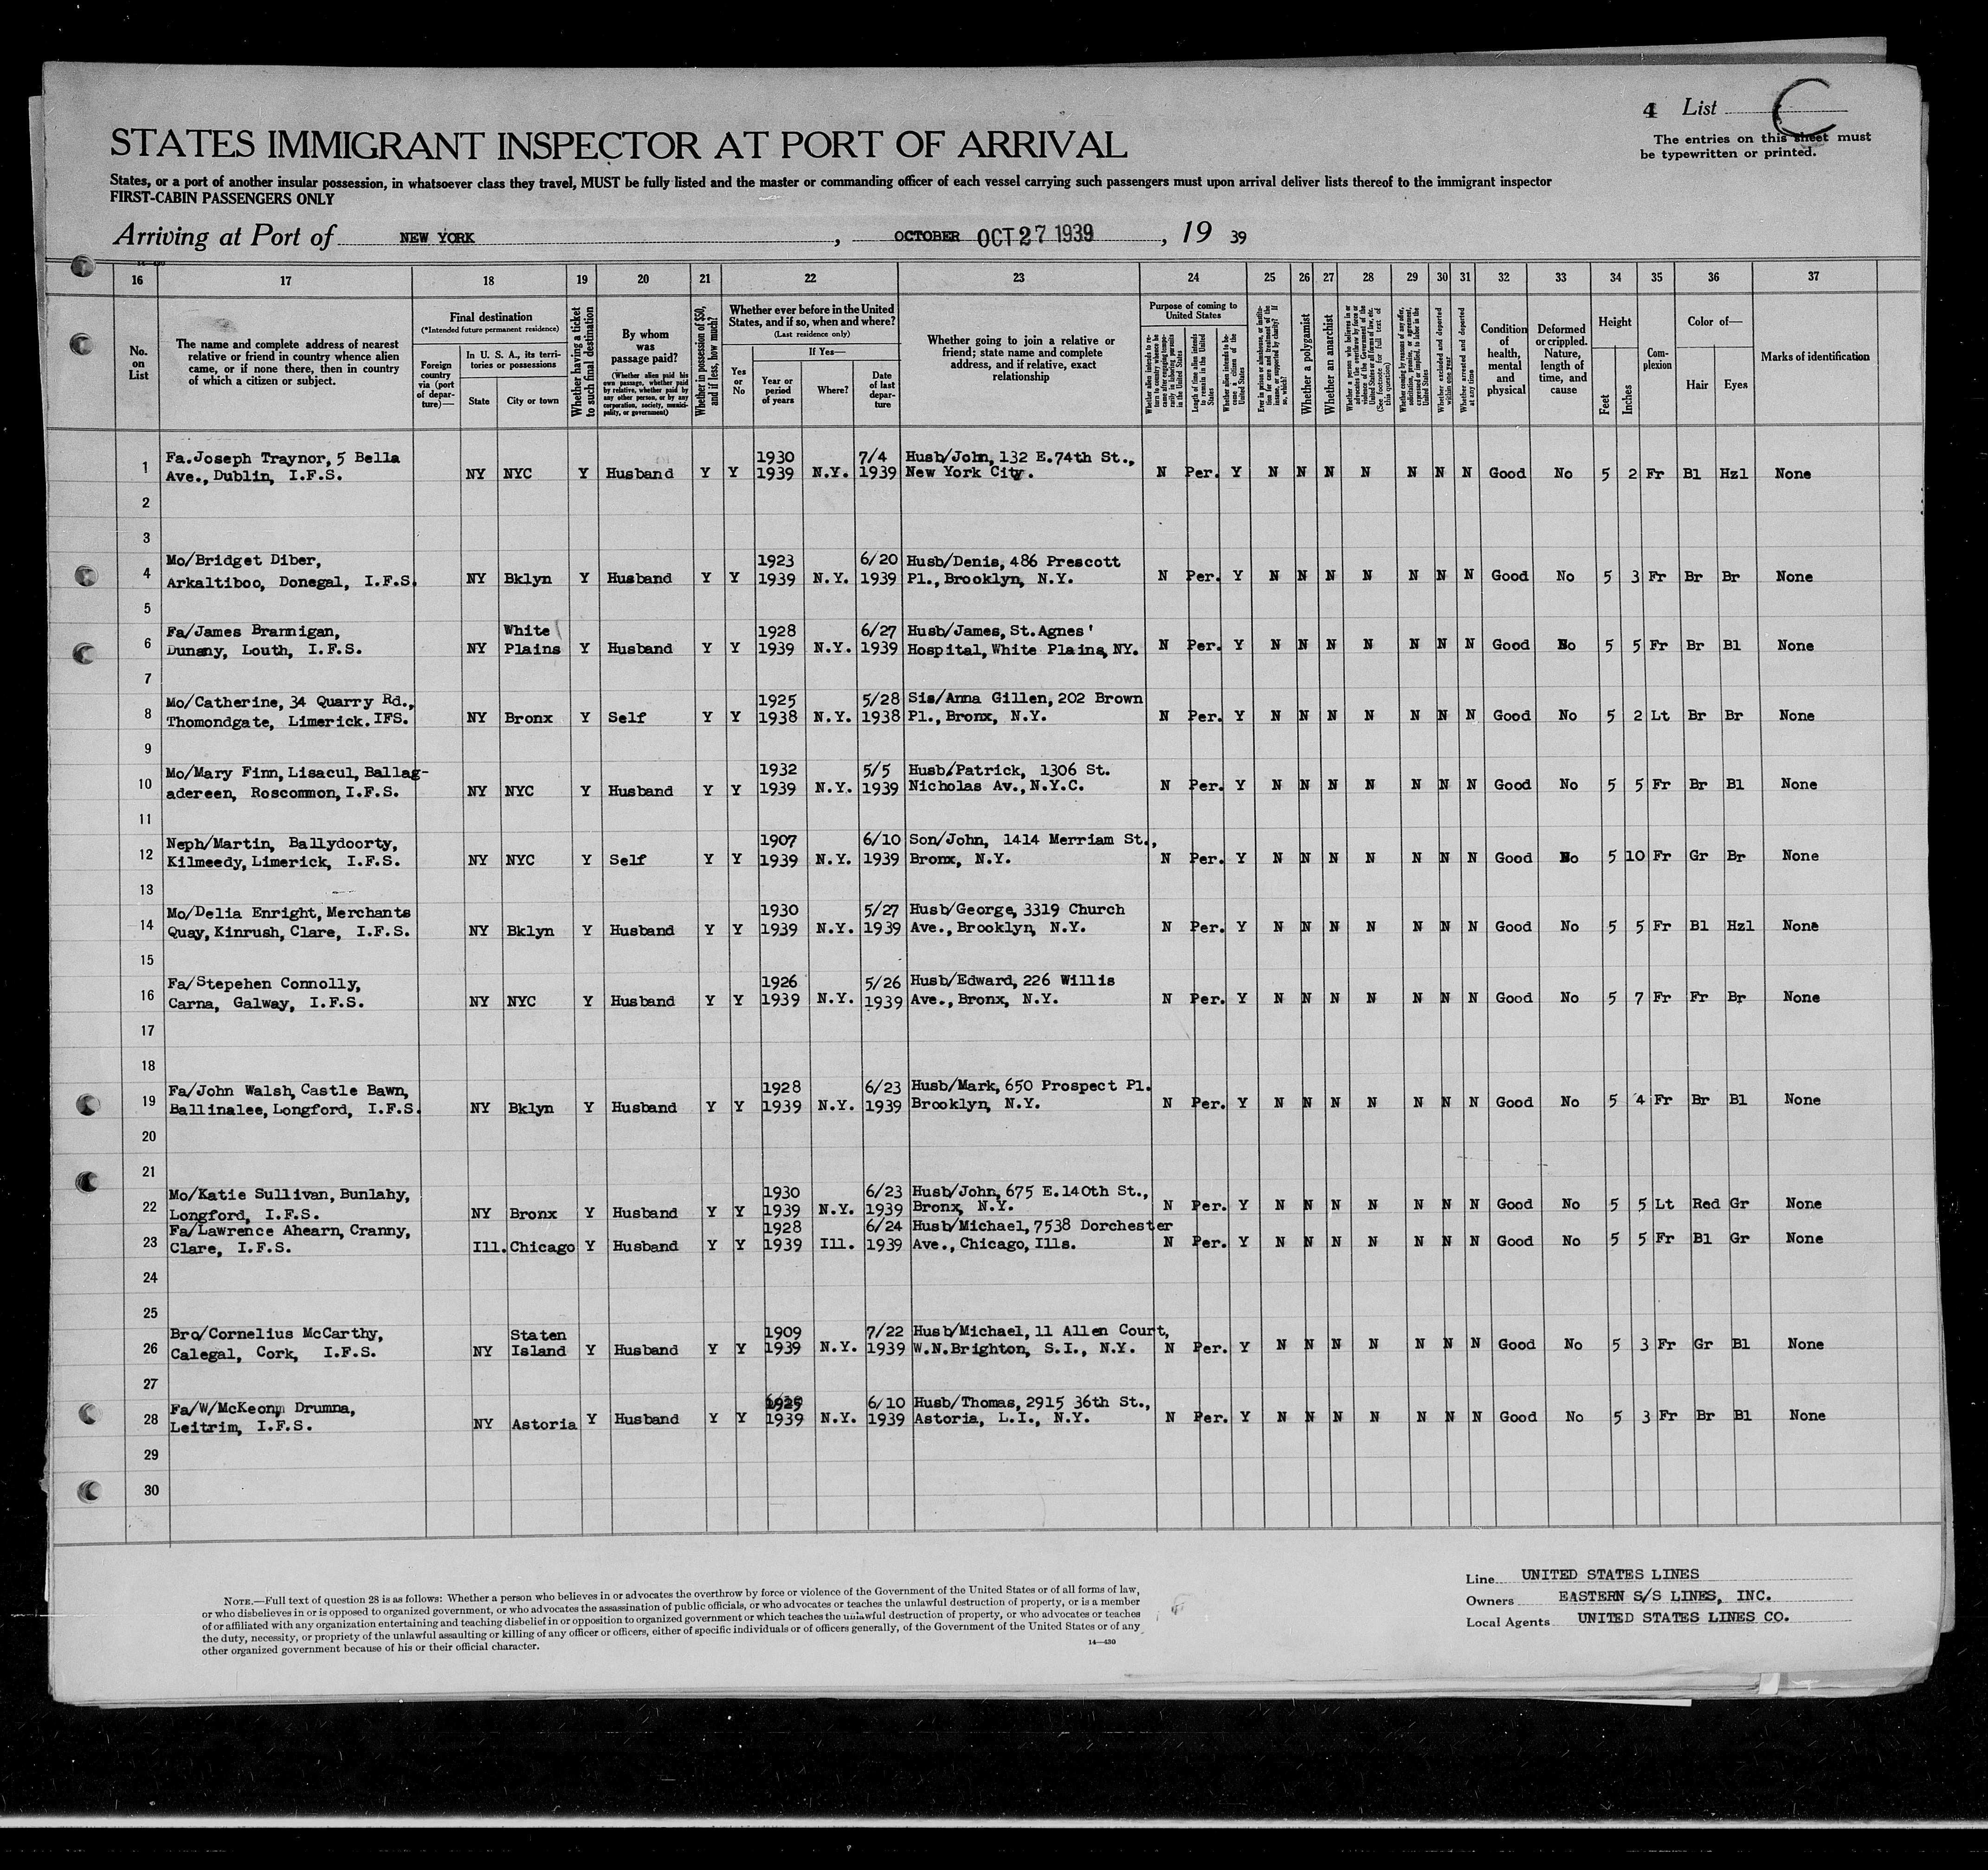 4 List C
The entries on this sheet must
be typewritten or printed.
STATES IMMIGRANT INSPECTOR AT PORT OF ARRIVAL
States, or a port of another insular possession, in whatsoever class they travel, MUST be fully listed and the master or commanding officer of each vessel carrying such passengers must upon arrival deliver lists thereof to the immigrant inspector
FIRST-CABIN PASSENGERS ONLY
Arriving at Port of NEW YORK, OCTOBER OCT 27 1939, 19 39
16 17 18 19 20 21 22 23 24 25 26 27 28 29 30 31 32 33 34 35 36 37
No. on List
The name and complete address of nearest relative or friend in country whence alien came, or if none there, then in country of which a citizen or subject.
Final destination
(*Intended future permanent residence)
Foreign country via (port of departure)—
In U. S. A., its territories or possessions
State City or town
Whether having a ticket to such final destination
By whom was passage paid?
(Whether alien paid his own passage, whether paid by relative, whether paid by any other person, or by any corporation, society, municipality, or government)
Whether in possession of $50, and if less, how much?
Whether ever before in the United States, and if so, when and where?
(Last residence only)
Yes or No
If Yes—
Year or period of years
Where?
Date of last departure
Whether going to join a relative or friend; state name and complete address, and if relative, exact relationship
Purpose of coming to United States
Whether alien intends to return to country whence he came after engaging temporarily in laboring pursuits in the United States
Length of time alien intends to remain in the United States
Whether alien intends to become a citizen of the United States
Ever in prison or almshouse, or institution for care and treatment of the insane, or supported by charity? If so, which?
Whether a polygamist
Whether an anarchist
Whether a person who believes in or advocates the overthrow by force or violence of the Government of the United States or all forms of law, etc. (See footnote for full text of this question)
Whether coming by reason of any offer, solicitation, promise, or agreement, expressed or implied, to labor in the United States
Whether excluded and deported within one year
Whether arrested and deported at any time
Condition of health, mental and physical
Deformed or crippled. Nature, length of time, and cause
Height
Feet Inches
Complexion
Color of—
Hair Eyes
Marks of identification
Fa.Joseph Traynor, 5 Bella 1930 7/4 Husb/John, 132 E.74th St.,
1 Ave., Dublin, I.F.S. NY NYC Y Husband Y Y 1939 N.Y. 1939 New York City. N Per. Y N N N N N N N Good No 5 2 Fr Bl Hzl None
2
3
Mo/Bridget Diber, 1923 6/20 Husb/Denis, 486 Prescott
4 Arkaltiboo, Donegal, I.F.S. NY Bklyn Y Husband Y Y 1939 N.Y. 1939 Pl., Brooklyn, N.Y. N Per. Y N N N N N N N Good No 5 3 Fr Br Br None
5
Fa/James Brannigan, White 1928 6/27 Husb/James, St.Agnes'
6 Dunany, Louth, I.F.S. NY Plains Y Husband Y Y 1939 N.Y. 1939 Hospital, White Plains, NY. N Per. Y N N N N N N N Good No 5 5 Fr Br Bl None
7
Mo/Catherine, 34 Quarry Rd., 1925 5/28 Sis/Anna Gillen, 202 Brown
8 Thomondgate, Limerick. IFS. NY Bronx Y Self Y Y 1938 N.Y. 1938 Pl., Bronx, N.Y. N Per. Y N N N N N N N Good No 5 2 Lt Br Br None
9
Mo/Mary Finn, Lisacul, Ballag- 1932 5/5 Husb/Patrick, 1306 St.
10 adereen, Roscommon, I.F.S. NY NYC Y Husband Y Y 1939 N.Y. 1939 Nicholas Av., N.Y.C. N Per. Y N N N N N N N Good No 5 5 Fr Br Bl None
11
Neph/Martin, Ballydoorty, 1907 6/10 Son/John, 1414 Merriam St.,
12 Kilmeedy, Limerick, I.F.S. NY NYC Y Self Y Y 1939 N.Y. 1939 Bronx, N.Y. N Per. Y N N N N N N N Good No 5 10 Fr Gr Br None
13
Mo/Delia Enright, Merchants 1930 5/27 Husb/George, 3319 Church
14 Quay, Kinrush, Clare, I.F.S. NY Bklyn Y Husband Y Y 1939 N.Y. 1939 Ave., Brooklyn, N.Y. N Per. Y N N N N N N N Good No 5 5 Fr Bl Hzl None
15
Fa/Stepehen Connolly, 1926 5/26 Husb/Edward, 226 Willis
16 Carna, Galway, I.F.S. NY NYC Y Husband Y Y 1939 N.Y. 1939 Ave., Bronx, N.Y. N Per. Y N N N N N N N Good No 5 7 Fr Fr Br None
17
18
Fa/John Walsh, Castle Bawn, 1928 6/23 Husb/Mark, 650 Prospect Pl.
19 Ballinalee, Longford, I.F.S. NY Bklyn Y Husband Y Y 1939 N.Y. 1939 Brooklyn, N.Y. N Per. Y N N N N N N N Good No 5 4 Fr Br Bl None
20
21
Mo/Katie Sullivan, Bunlahy, 1930 6/23 Husb/John, 675 E.140th St.,
22 Longford, I.F.S. NY Bronx Y Husband Y Y 1939 N.Y. 1939 Bronx, N.Y. N Per. Y N N N N N N N Good No 5 5 Lt Red Gr None
Fa/Lawrence Ahearn, Cranny, 1928 6/24 Husb/Michael, 7538 Dorchester
23 Clare, I.F.S. Ill. Chicago Y Husband Y Y 1939 Ill. 1939 Ave., Chicago, Ills. N Per. Y N N N N N N N Good No 5 5 Fr Bl Gr None
24
25
Bro/Cornelius McCarthy, Staten 1909 7/22 Husb/Michael, 11 Allen Court,
26 Calegal, Cork, I.F.S. NY Island Y Husband Y Y 1939 N.Y. 1939 W.N.Brighton, S.I., N.Y. N Per. Y N N N N N N N Good No 5 3 Fr Gr Bl None
27
Fa/W/McKeon, Drumna, 6/10 Husb/Thomas, 2915 36th St.,
28 Leitrim, I.F.S. NY Astoria Y Husband Y Y 1939 N.Y. 1939 Astoria, L.I., N.Y. N Per. Y N N N N N N N Good No 5 3 Fr Br Bl None
29
30
NOTE.—Full text of question 28 is as follows: Whether a person who believes in or advocates the overthrow by force or violence of the Government of the United States or of all forms of law,
or who disbelieves in or is opposed to organized government, or who advocates the assassination of public officials, or who advocates or teaches the unlawful destruction of property, or is a member
of or affiliated with any organization entertaining and teaching disbelief in or opposition to organized government or which teaches the unlawful destruction of property, or who advocates or teaches
the duty, necessity, or propriety of the unlawful assaulting or killing of any officer or officers, either of specific individuals or of officers generally, of the Government of the United States or of any
other organized government because of his or their official character.
14—430
Line UNITED STATES LINES
Owners EASTERN S/S LINES, INC.
Local Agents UNITED STATES LINES CO.